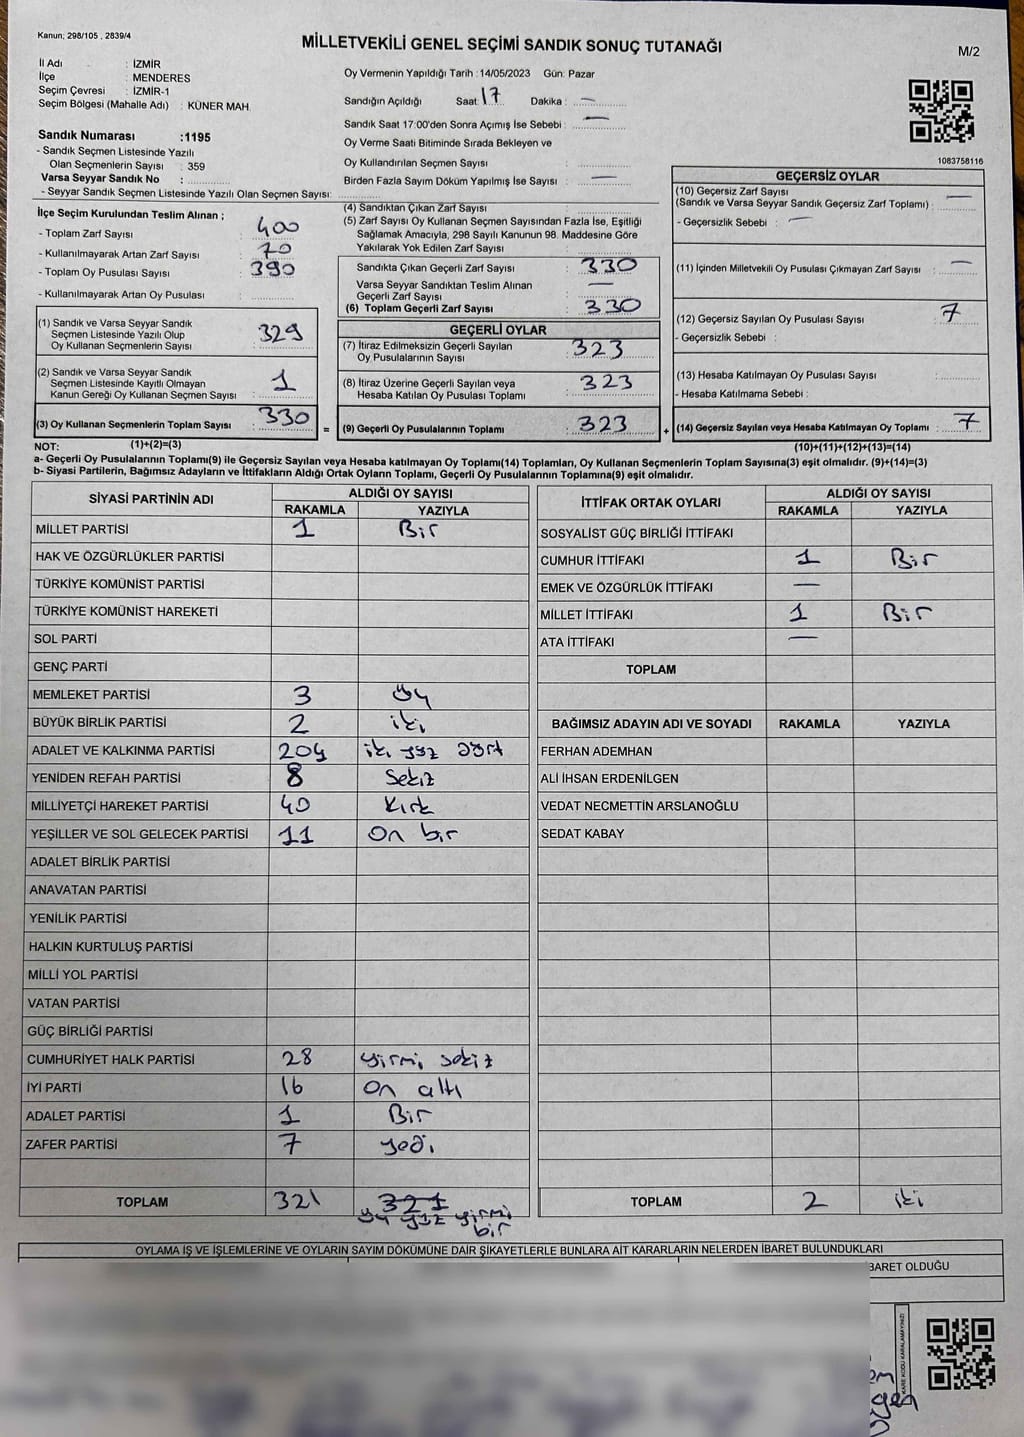 Kanun; 298/105 , 2839/4
MİLLETVEKİLİ GENEL SEÇİMİ SANDIK SONUÇ TUTANAĞI
M/2
İl Adı : İZMİR
İlçe : MENDERES
Seçim Çevresi : İZMİR-1
Seçim Bölgesi (Mahalle Adı) : KÜNER MAH.
Sandık Numarası :1195
- Sandık Seçmen Listesinde Yazılı
Olan Seçmenlerin Sayısı : 359
Varsa Seyyar Sandık No :
- Seyyar Sandık Seçmen Listesinde Yazılı Olan Seçmen Sayısı:
Oy Vermenin Yapıldığı Tarih :14/05/2023 Gün: Pazar
Sandığın Açıldığı Saat: 17 Dakika : —
Sandık Saat 17:00'den Sonra Açımış İse Sebebi : —
Oy Verme Saati Bitiminde Sırada Bekleyen ve
Oy Kullandırılan Seçmen Sayısı :
Birden Fazla Sayım Döküm Yapılmış İse Sayısı : —
1083758116
İlçe Seçim Kurulundan Teslim Alınan ;
- Toplam Zarf Sayısı : 400
- Kullanılmayarak Artan Zarf Sayısı : 70
- Toplam Oy Pusulası Sayısı : 390
- Kullanılmayarak Artan Oy Pusulası :
(1) Sandık ve Varsa Seyyar Sandık
Seçmen Listesinde Yazılı Olup
Oy Kullanan Seçmenlerin Sayısı : 329
(2) Sandık ve Varsa Seyyar Sandık
Seçmen Listesinde Kayıtlı Olmayan
Kanun Gereği Oy Kullanan Seçmen Sayısı : 1
(3) Oy Kullanan Seçmenlerin Toplam Sayısı : 330 =
(4) Sandıktan Çıkan Zarf Sayısı :
(5) Zarf Sayısı Oy Kullanan Seçmen Sayısından Fazla İse, Eşitliği
Sağlamak Amacıyla, 298 Sayılı Kanunun 98. Maddesine Göre
Yakılarak Yok Edilen Zarf Sayısı :
Sandıkta Çıkan Geçerli Zarf Sayısı : 330
Varsa Seyyar Sandıktan Teslim Alınan
Geçerli Zarf Sayısı : —
(6) Toplam Geçerli Zarf Sayısı : 330
GEÇERLİ OYLAR
(7) İtiraz Edilmeksizin Geçerli Sayılan
Oy Pusulalarının Sayısı : 323
(8) İtiraz Üzerine Geçerli Sayılan veya
Hesaba Katılan Oy Pusulası Toplamı : 323
(9) Geçerli Oy Pusulalarının Toplamı : 323 +
GEÇERSİZ OYLAR
(10) Geçersiz Zarf Sayısı
(Sandık ve Varsa Seyyar Sandık Geçersiz Zarf Toplamı) : —
- Geçersizlik Sebebi : —
(11) İçinden Milletvekili Oy Pusulası Çıkmayan Zarf Sayısı : —
(12) Geçersiz Sayılan Oy Pusulası Sayısı : 7
- Geçersizlik Sebebi :
(13) Hesaba Katılmayan Oy Pusulası Sayısı :
- Hesaba Katılmama Sebebi :
(14) Geçersiz Sayılan veya Hesaba Katılmayan Oy Toplamı : 7
NOT: (1)+(2)=(3) (10)+(11)+(12)+(13)=(14)
a- Geçerli Oy Pusulalarının Toplamı(9) ile Geçersiz Sayılan veya Hesaba katılmayan Oy Toplamı(14) Toplamları, Oy Kullanan Seçmenlerin Toplam Sayısına(3) eşit olmalıdır. (9)+(14)=(3)
b- Siyasi Partilerin, Bağımsız Adayların ve İttifakların Aldığı Ortak Oyların Toplamı, Geçerli Oy Pusulalarının Toplamına(9) eşit olmalıdır.
SİYASİ PARTİNİN ADI ALDIĞI OY SAYISI
RAKAMLA YAZIYLA
MİLLET PARTİSİ 1 Bir
HAK VE ÖZGÜRLÜKLER PARTİSİ
TÜRKİYE KOMÜNİST PARTİSİ
TÜRKİYE KOMÜNİST HAREKETİ
SOL PARTİ
GENÇ PARTİ
MEMLEKET PARTİSİ 3 üç
BÜYÜK BİRLİK PARTİSİ 2 iki
ADALET VE KALKINMA PARTİSİ 204 iki yüz dört
YENİDEN REFAH PARTİSİ 8 Sekiz
MİLLİYETÇİ HAREKET PARTİSİ 40 Kırk
YEŞİLLER VE SOL GELECEK PARTİSİ 11 On bir
ADALET BİRLİK PARTİSİ
ANAVATAN PARTİSİ
YENİLİK PARTİSİ
HALKIN KURTULUŞ PARTİSİ
MİLLİ YOL PARTİSİ
VATAN PARTİSİ
GÜÇ BİRLİĞİ PARTİSİ
CUMHURİYET HALK PARTİSİ 28 yirmi sekiz
İYİ PARTİ 16 On altı
ADALET PARTİSİ 1 Bir
ZAFER PARTİSİ 7 yedi
TOPLAM 321 321
üç yüz yirmi
bir
İTTİFAK ORTAK OYLARI ALDIĞI OY SAYISI
RAKAMLA YAZIYLA
SOSYALİST GÜÇ BİRLİĞİ İTTİFAKI
CUMHUR İTTİFAKI 1 Bir
EMEK VE ÖZGÜRLÜK İTTİFAKI —
MİLLET İTTİFAKI 1 Bir
ATA İTTİFAKI —
TOPLAM
BAĞIMSIZ ADAYIN ADI VE SOYADI RAKAMLA YAZIYLA
FERHAN ADEMHAN
ALİ İHSAN ERDENİLGEN
VEDAT NECMETTİN ARSLANOĞLU
SEDAT KABAY
TOPLAM 2 iki
OYLAMA İŞ VE İŞLEMLERİNE VE OYLARIN SAYIM DÖKÜMÜNE DAİR ŞİKAYETLERLE BUNLARA AİT KARARLARIN NELERDEN İBARET BULUNDUKLARI
BARET OLDUĞU
KARE KODU KARALAMAYINIZ!